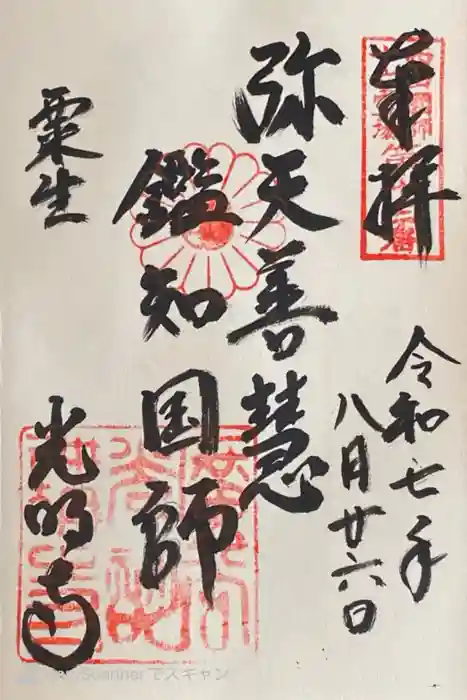 奉拝
令和七年
八月廿六日
弥天善慧
鑑知国師
粟生
光明寺
Scannerでスキャン